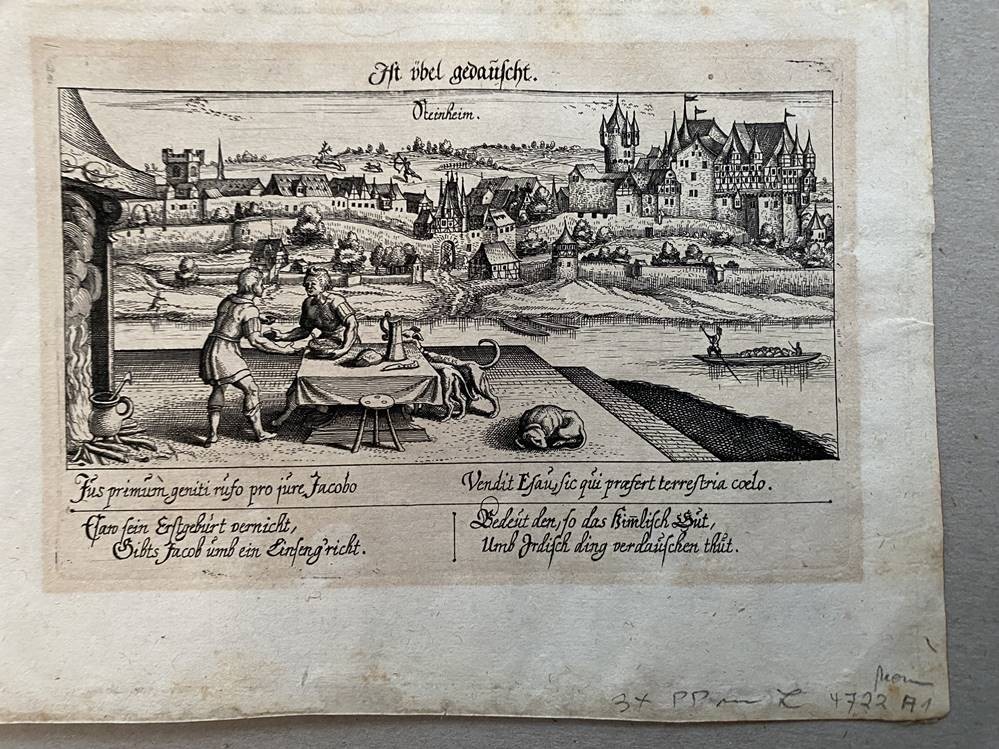 Ist übel gedaüscht.
Steinheim.
Jus primum geniti rufo pro jure Jacobo
Vendit Esau, sic qui præfert terrestria coelo.
Esaw sein Erstgebürt vernicht,
Gibts Jacob ümb ein Linseng'richt.
Bedeüt den, so das Him̃lisch Güt,
Umb Irdisch ding verdaüschen thüt.
3x PP L 4722 A1